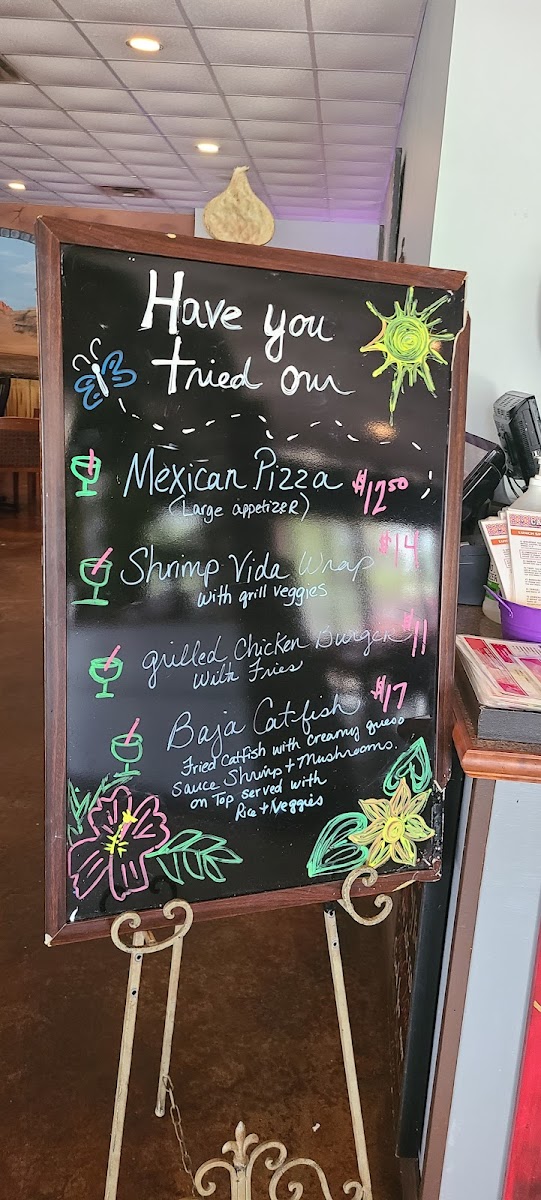 Have you
tried our
Mexican Pizza $12.50
(Large appetizer)
Shrimp Vida Wrap $14
with grill veggies
grilled Chicken Burger $11
with Fries
Baja Catfish $17
Fried Catfish with creamy queso
sauce Shrimp + Mushrooms.
on Top served with
Rice + Veggies